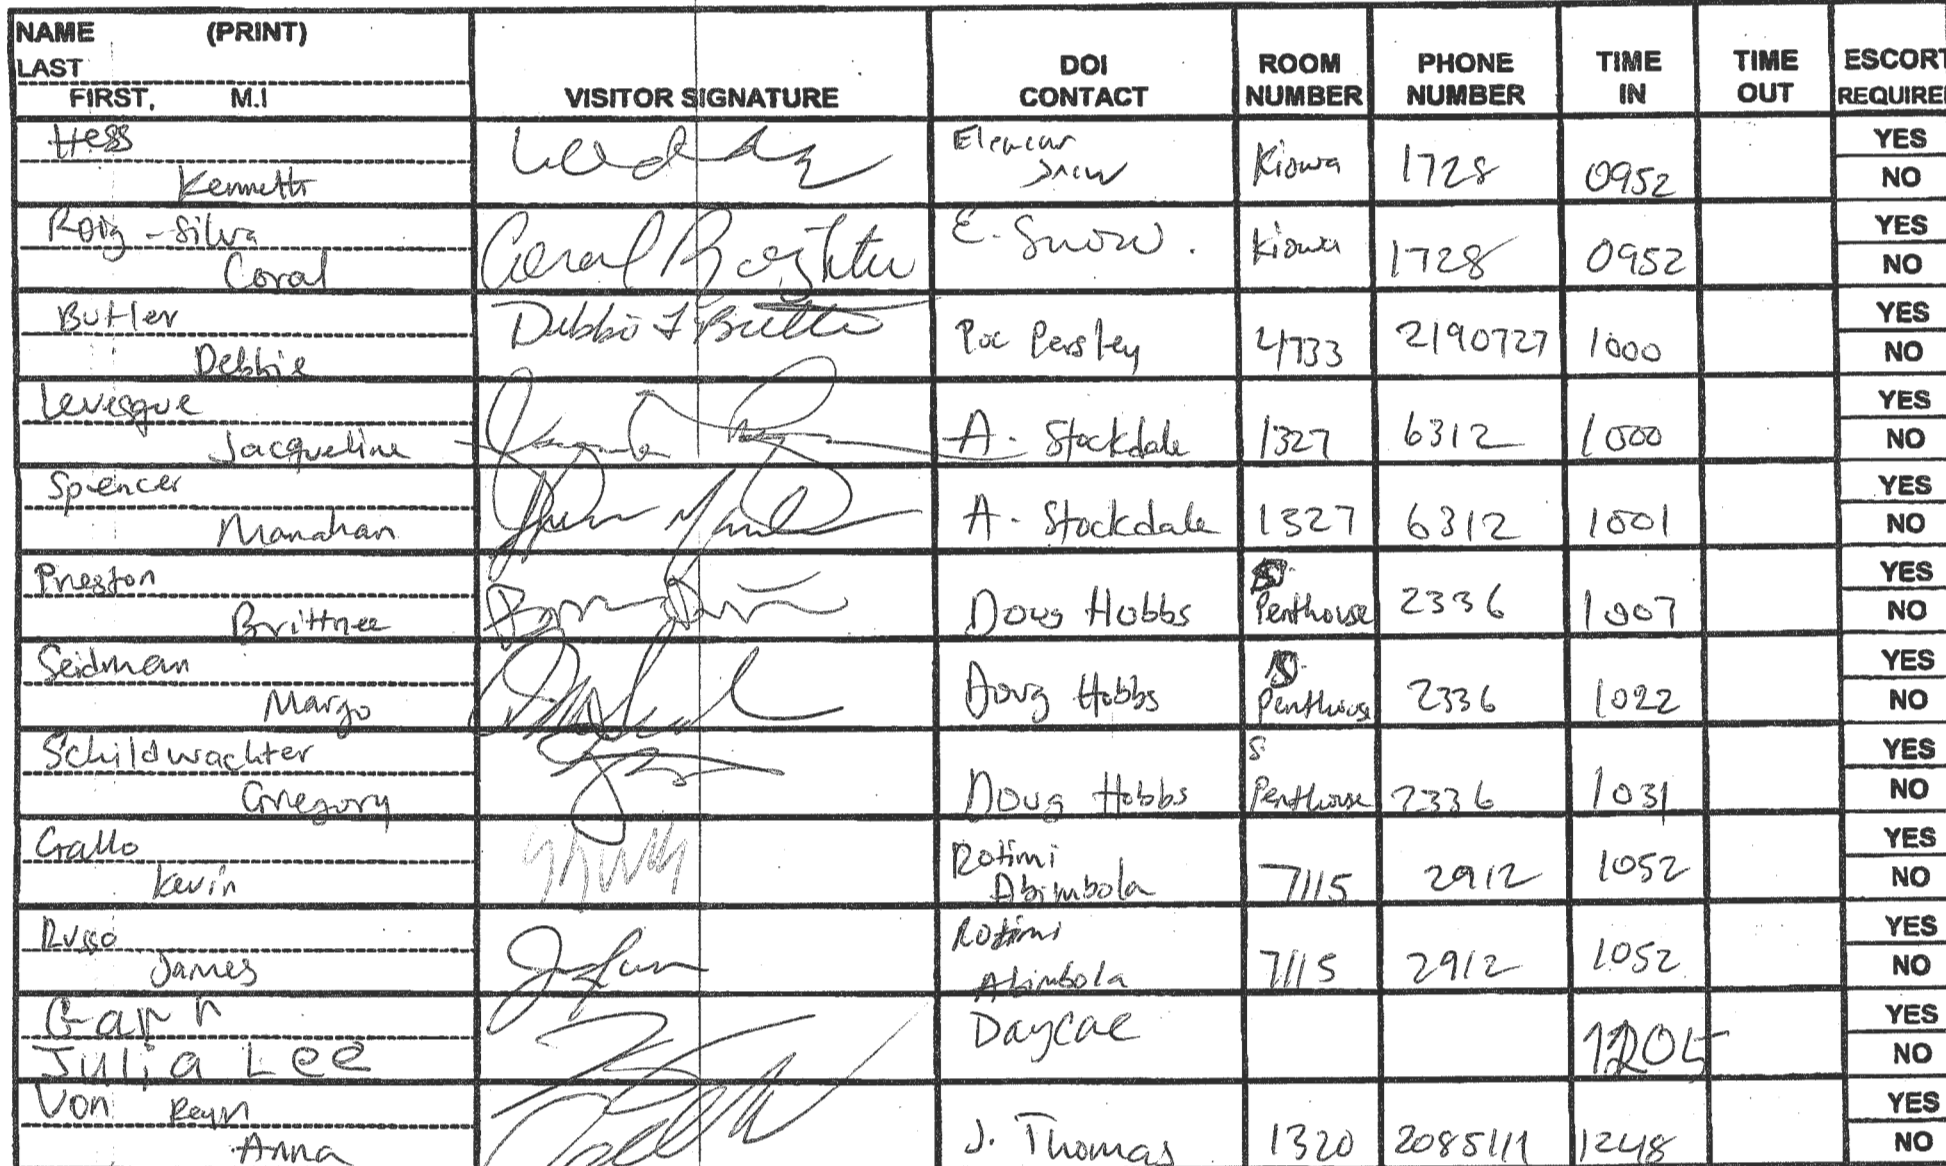 NAME (PRINT)
LAST
FIRST, M.I
VISITOR SIGNATURE
DOI
CONTACT
ROOM
NUMBER
PHONE
NUMBER
TIME
IN
TIME
OUT
ESCORT
REQUIRE
Hess
Kenneth
Eleanor
Snow
Kiowa 1728 0952
YES
NO
Roig-Silva
Coral
E. Snow. Kiowa 1728 0952
YES
NO
Butler
Debbie
Debbie
Poc 4733 2190727 1000
YES
NO
Levesque
Jacqueline
A. Stockdale 1327 6312 1000
YES
NO
Spencer
Manahan
A. Stockdale 1327 6312 1001
YES
NO
Preston
Brittnee
Doug Hobbs Penthouse 2336 1007
YES
NO
Seidman
Margo
Doug Hobbs Penthouse 2336 1022
YES
NO
Schildwachter
Gregory
Doug Hobbs
S
Penthouse 2336 1031
YES
NO
Gallo
Kevin
Rotimi
Abimbola
7115 2912 1052
YES
NO
Russo
James
Rotimi
Abimbola
7115 2912 1052
YES
NO
Julia Lee
Daycae
1205
YES
NO
Von Reyn
Anna
J. Thomas 1320 2085111 1248
YES
NO